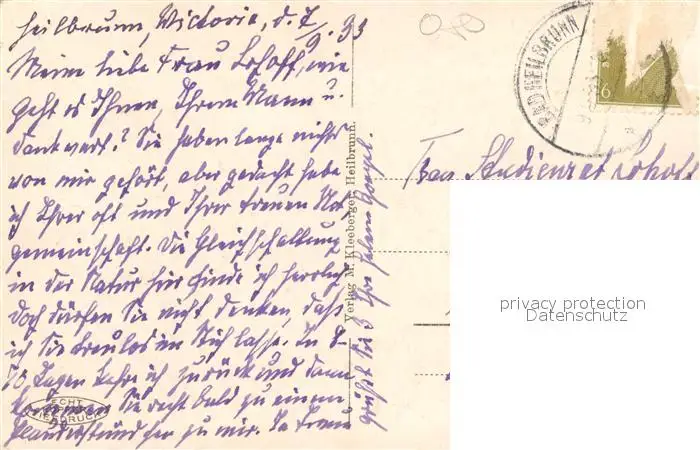 Heilbrunn, Victoria, d. 7.
9. 33
Meine liebe Frau Lohoff, wie
geht es Ihnen, Ihrem Mann u.
Sie haben lange nichts
von mir gehört, aber gedacht habe
ich Ihrer oft und Ihrer treuen
gemeinschaft. Die Gleichschaltung
in der Natur hier finde ich herrlich
Doch dürfen Sie nicht denken, daß
ich Sie treulos im Stich lasse. In 8-
10 Tagen kehre ich zurück und dann
kommen Sie recht bald zu einem
Plauderstündchen zu mir. In Treue
grüßt Sie Ihre
Verlag M. Kleeberger, Heilbrunn.
ECHT
TIEFDRUCK
BRUNN
6
Frau Studienrat Lohoff
privacy protection
Datenschutz